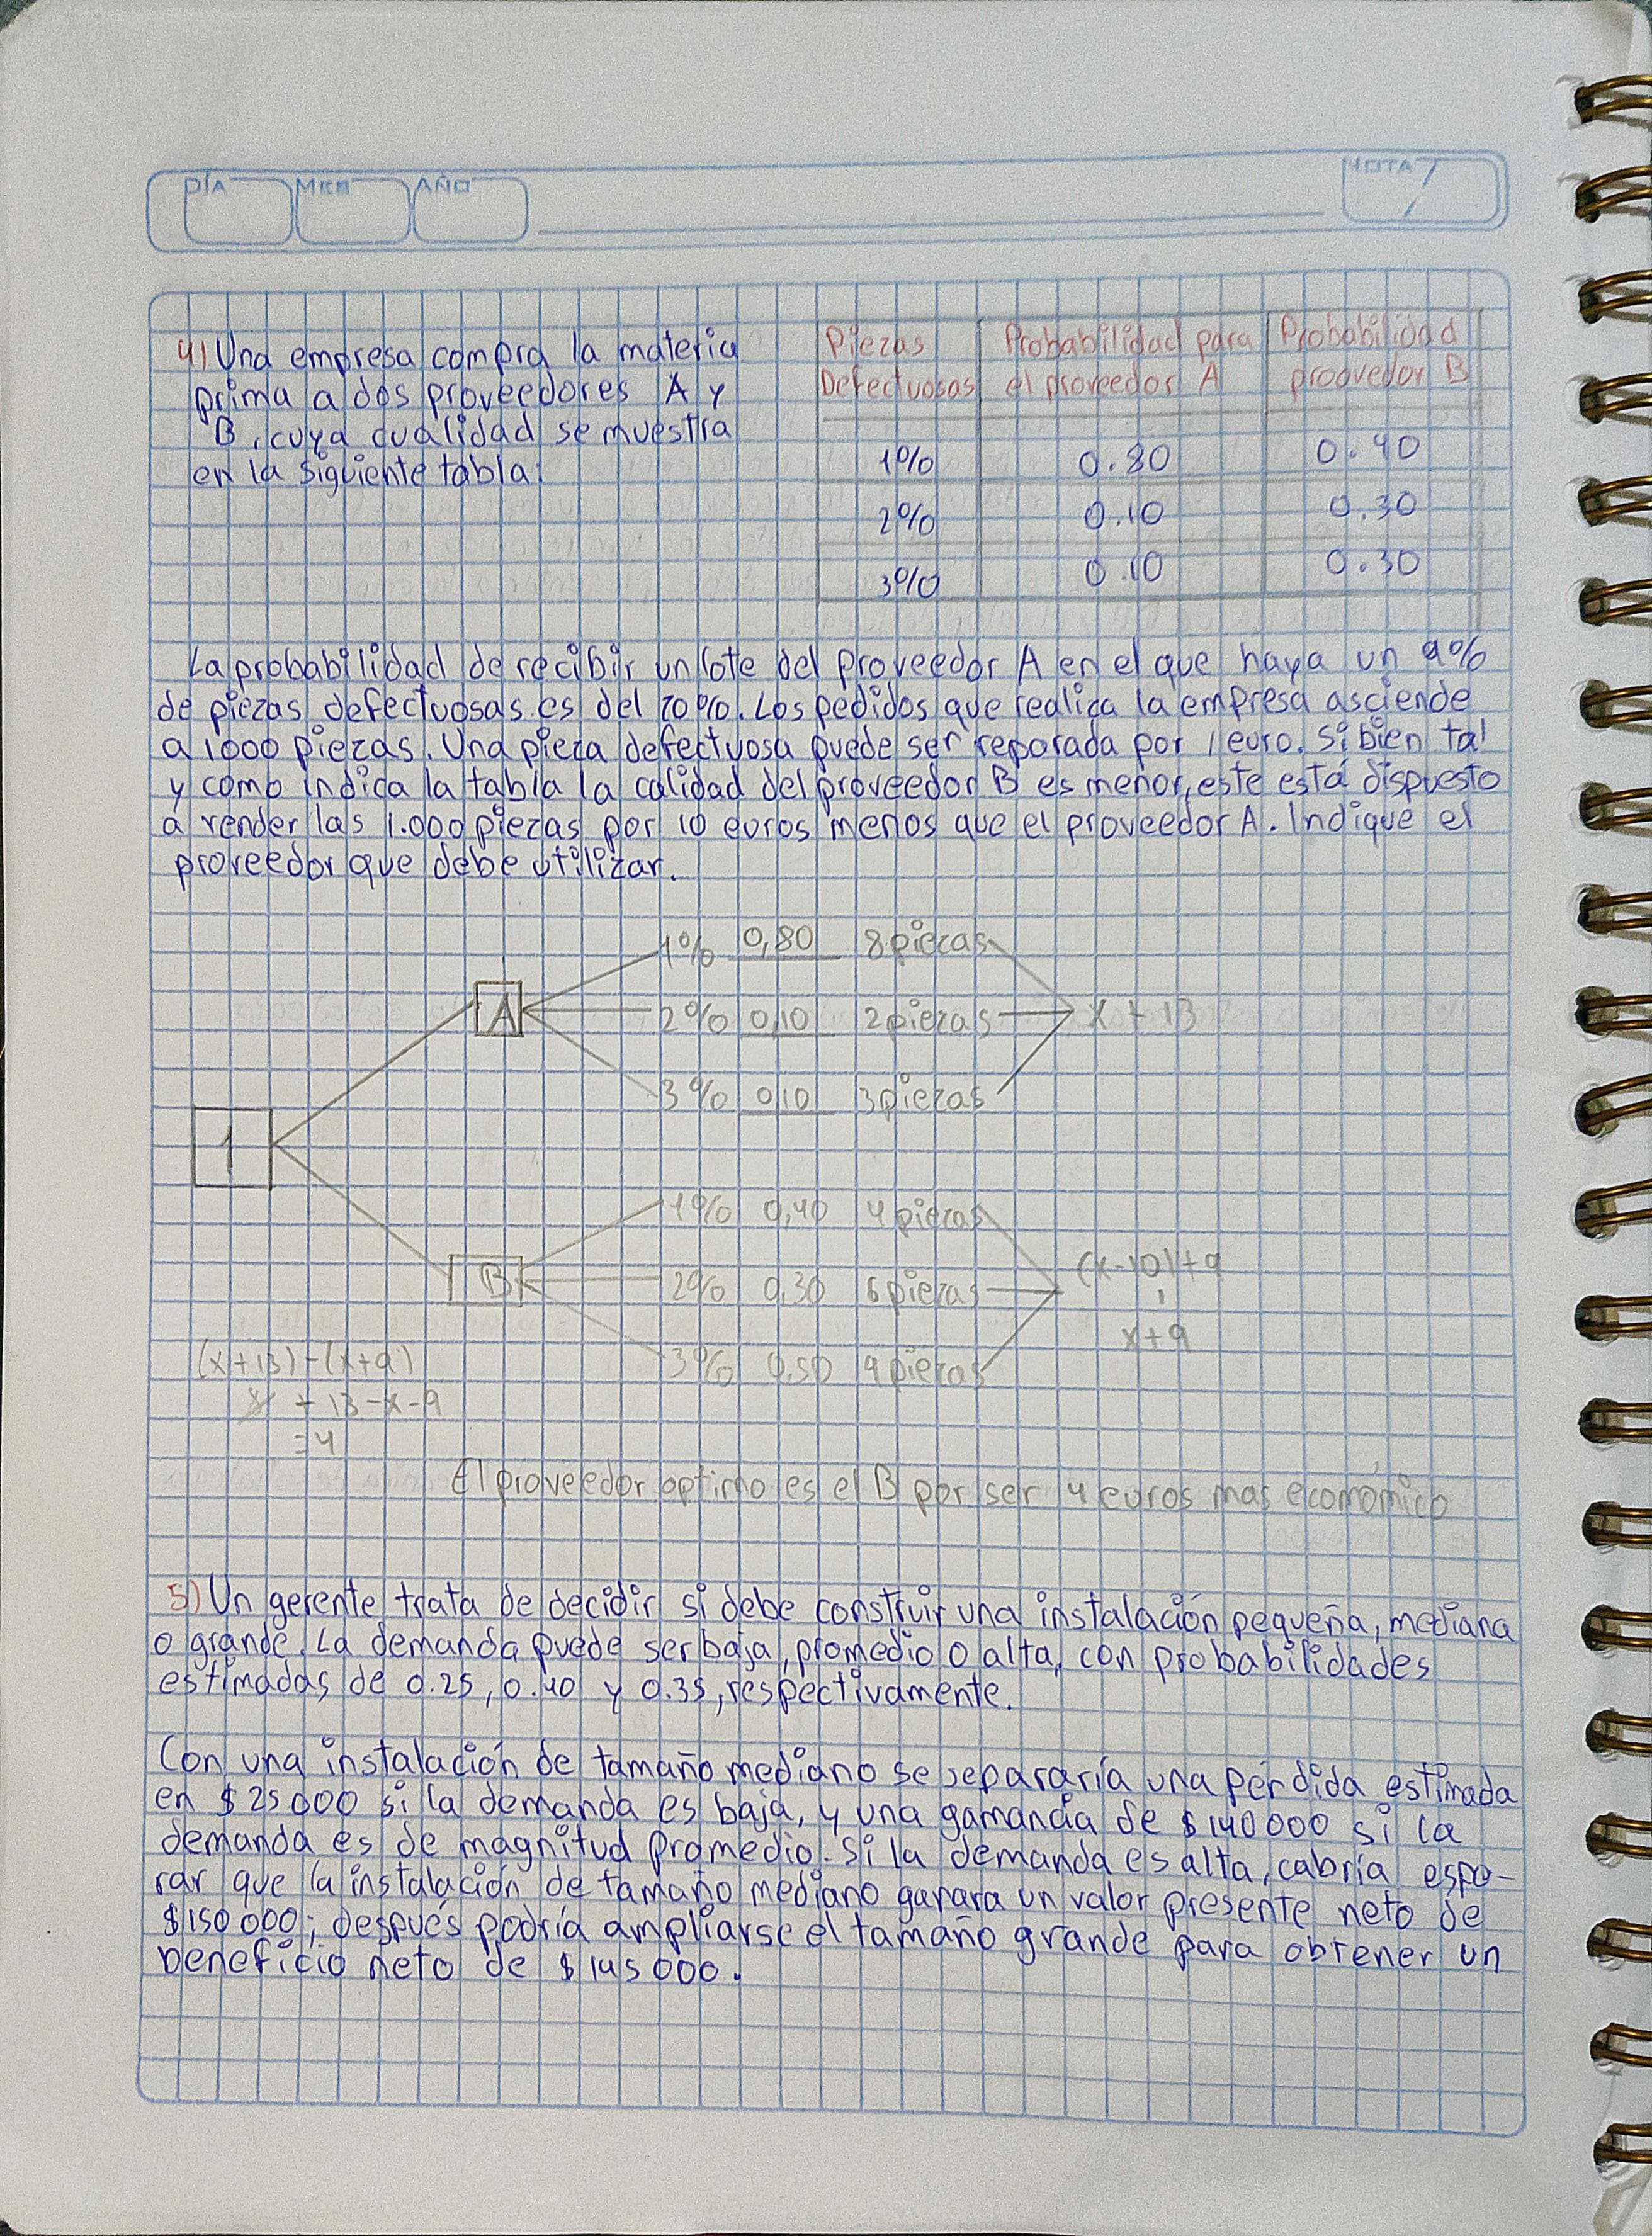 DÍA MES AÑO NOTA
4) Una empresa compra la materia
prima a dos proveedores A y
B, cuya cualidad se muestra
en la siguiente tabla:
Piezas Defectuosas Probabilidad para el proveedor A Probabilidad proovedor B
1% 0.80 0.40
2% 0.10 0.30
3% 0.10 0.30
La probabilidad de recibir un lote del proveedor A en el que haya un
de piezas defectuosas es del 70%. Los pedidos que realiza la empresa asciende
a 1000 piezas. Una pieza defectuosa puede ser reparada por 1 euro. Si bien tal
y como indica la tabla la calidad del proveedor B es menor, este está dispuesto
a vender las 1.000 piezas por 10 euros menos que el proveedor A. Indique el
proveedor que debe utilizar.
1% 0,80 8 piezas
A 2% 0,10 2 piezas x + 13
3% 0,10 3 piezas
1
1% 0,40 4 piezas
B 2% 0,30 6 piezas (x-10)+9
x+9
3% 0,30 9 piezas
(x+13)-(x+9)
x + 13-x-9
=4
El proveedor optimo es el B por ser 4 euros mas ecomómico
5) Un gerente trata de decidir si debe construir una instalación pequeña, mediana
o grande. La demanda puede ser baja, promedio o alta, con probabilidades
estimadas de 0.25, 0.40 y 0.35, respectivamente.
Con una instalación de tamaño mediano se separaría una pérdida estimada
en $25000 si la demanda es baja, y una gamancia de $140000 si la
demanda es de magnitud promedio. Si la demanda es alta, cabría espe-
rar que la instalación de tamaño mediano ganara un valor presente neto de
$150000; después podría ampliarse el tamaño grande para obtener un
beneficio neto de $145000.